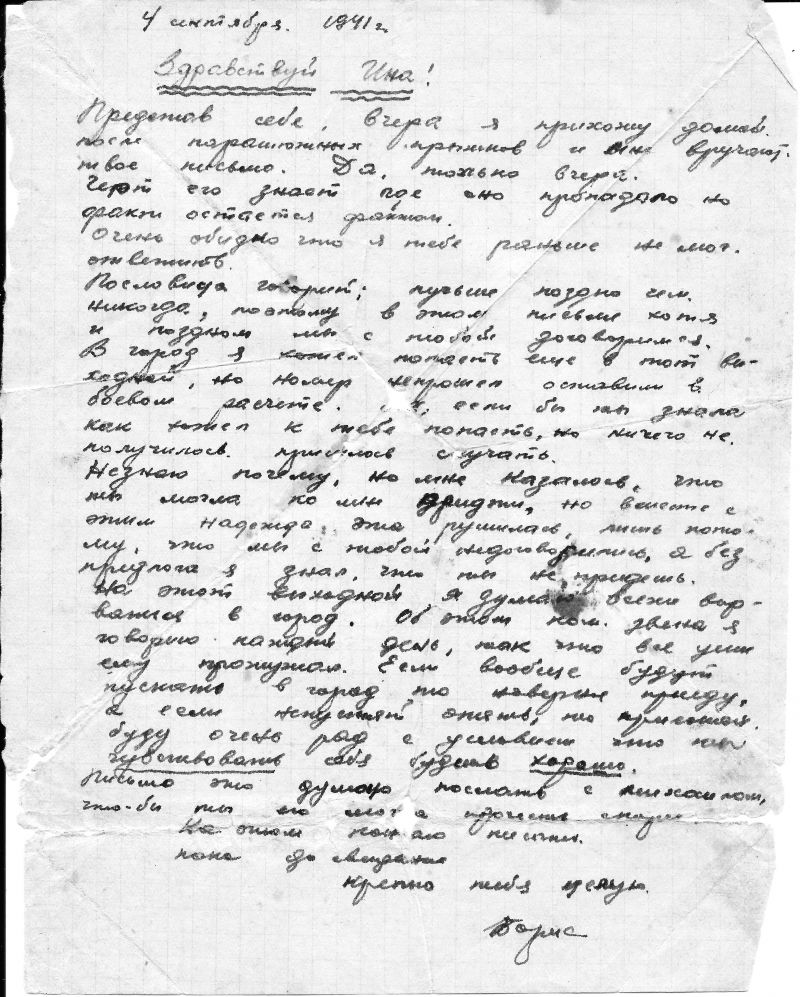 4 сентября. 1941 г.
Здравствуй Ина!
Представ себе, вчера я прихожу домой.
после парашютных прыжков и мне вручают.
твое письмо. Да, только вчера.
Черт его знает где оно пропадало но
факт остается фактом.
Очень обидно что я тебе раньше не мог.
ответить.
Пословица говорит; лучьше поздно чем.
никогда, поэтому в этом письме хотя
и поздном мы с тобой договоримся.
В город я хотел попасть еще в тот вы-
ходной, но номер непрошел оставили в
боевом расчете. если бы ты знала
как хотел к тебе попасть, но ничего не.
получилось. пришлось скучать.
Незнаю почему, но мне казалось, что
ты могла ко мне придти, но вместе с
этим надежда, эта рушилась, лишь пото-
му, что мы с тобой недоговорились, а без
предлога я знал, что ты не придешь.
На этот выходной я думаю всеже выр-
ваться в город. Об этом ком. звена я
говорю каждый день, так что все уши
ему прожужал. Если вообще будут
пускать в город то наверня приеду,
а если непустят опять, то
буду очень рад с условием что ты
чувствовать себя будешь хорошо.
Письмо это думаю послать с Михаилом,
что-бы ты его могла прочесть скорее
На этом кончаю писать.
пока до свидания
Крепко тебя целую.
Борис